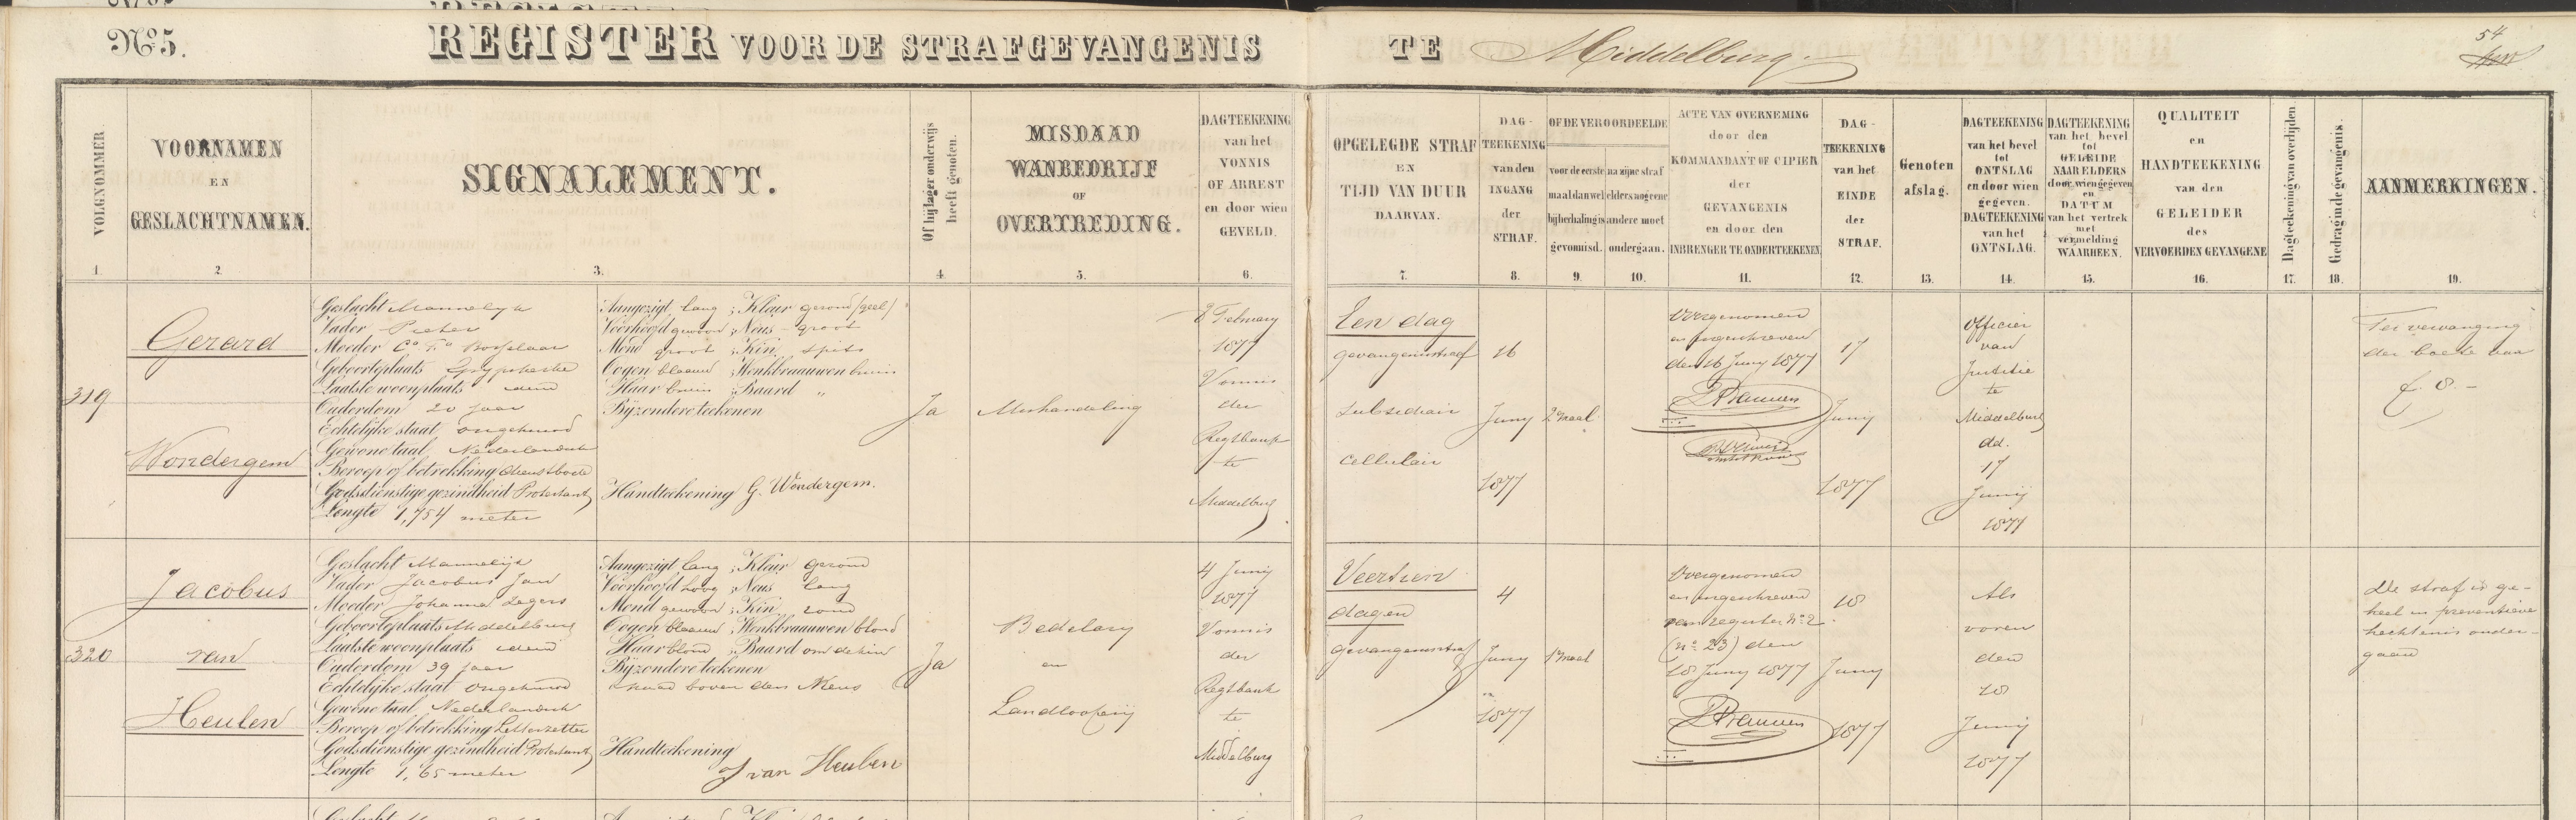 No. 5.
REGISTER VOOR DE STRAFGEVANGENIS TE Middelburg.
54
VOLGNOMMER
1.
VOORNAMEN
EN
GESLACHTNAMEN.
2.
SIGNALEMENT.
3.
Of hij lager onderwijs
heeft genoten.
4.
MISDAAD
WANBEDRIJF
OF
OVERTREDING.
5.
DAGTEEKENING
van het
VONNIS
OF ARREST
en door wien
GEVELD.
6.
OPGELEGDE STRAF
EN
TIJD VAN DUUR
DAARVAN.
7.
DAG-
TEEKENING
van den
INGANG
der
STRAF.
8.
OF DE VEROORDEELDE
voor de eerste
maal dan wel
bij herhaling is
gevonnisd.
9.
na zijne straf
elders nog eene
andere moet
ondergaan.
10.
ACTE VAN OVERNEMING
door den
KOMMANDANT OF CIPIER
der
GEVANGENIS
en door den
INBRENGER TE ONDERTEEKENEN
11.
DAG-
TEEKENING
van het
EINDE
der
STRAF.
12.
Genoten
afslag.
13.
DAGTEEKENING
van het bevel
tot
ONTSLAG
en door wien
gegeven.
DAGTEEKENING
van het
ONTSLAG.
14.
DAGTEEKENING
van het bevel
tot
GELEIDE
NAAR ELDERS
door wien gegeven
en
DATUM
van het vertrek
met
vermelding
WAARHEEN.
15.
QUALITEIT
en
HANDTEEKENING
van den
GELEIDER
des
VERVOERDEN GEVANGENE
16.
Dagteekening van overlijden
17.
Gedrag in de gevangenis.
18.
AANMERKINGEN.
19.
319
Gerard
Wondergem
Geslacht Mannelijk
Vader Pieter
Moeder Ca. Ta.
Geboorteplaats Grypskerke
Laatste woonplaats idem
Ouderdom 20 jaar
Echtelijke staat ongehuwd
Gewone taal Nederlandsch
Beroep of betrekking dienstbode
Godsdienstige gezindheid Protestant
Lengte 1,754 meter
Aangezigt lang ; Kleur gezond (geel)
Voorhoofd gewoon ; Neus groot
Mond groot ; Kin spits
Oogen blaauw ; Wenkbraauwen bruin
Haar bruin ; Baard "
Bijzondere teekenen
Handteekening G. Wondergem.
Ja
Mishandeling
8 February
1877
Vonnis
der
Regtbank
te
Middelburg
Een dag
gevangenisstraf
subsidiair
cellulair
16
Juny
1877
2e maal
Overgenomen
en ingeschreven
den 16 Juny 1877
17
Junij
1877
Officier
van
Justitie
te
Middelburg
dd.
17
Junij
1877
Ter vervanging
der boete van
f. 8.-
320
Jacobus
van
Heulen
Geslacht Mannelijk
Vader Jacobus Jan
Moeder Johanna Segers
Geboorteplaats Middelburg
Laatste woonplaats idem
Ouderdom 39 jaar
Echtelijke staat ongehuwd
Gewone taal Nederlandsch
Beroep of betrekking Letterzetter
Godsdienstige gezindheid Protestant
Lengte 1,65 meter
Aangezigt lang ; Kleur gezond
Voorhoofd hoog ; Neus lang
Mond gewoon ; Kin rond
Oogen blaauw ; Wenkbraauwen blond
Haar blond ; Baard om de kin
Bijzondere teekenen
naad boven den Neus
Handteekening
J van Heulen
Ja
Bedelary
en
Landlooperij
4 Junij
1877
Vonnis
der
Regtbank
te
Middelburg
Veertien
dagen
gevangenisstraf
4
Juny
1877
1e maal
Overgenomen
en ingeschreven
van register No. 2
(no. 23) den
18 Juny 1877
18
Juny
1877
Als
voren
den
18
Junij
1877
De straf is ge-
heel in preventieve
hechtenis onder-
gaan